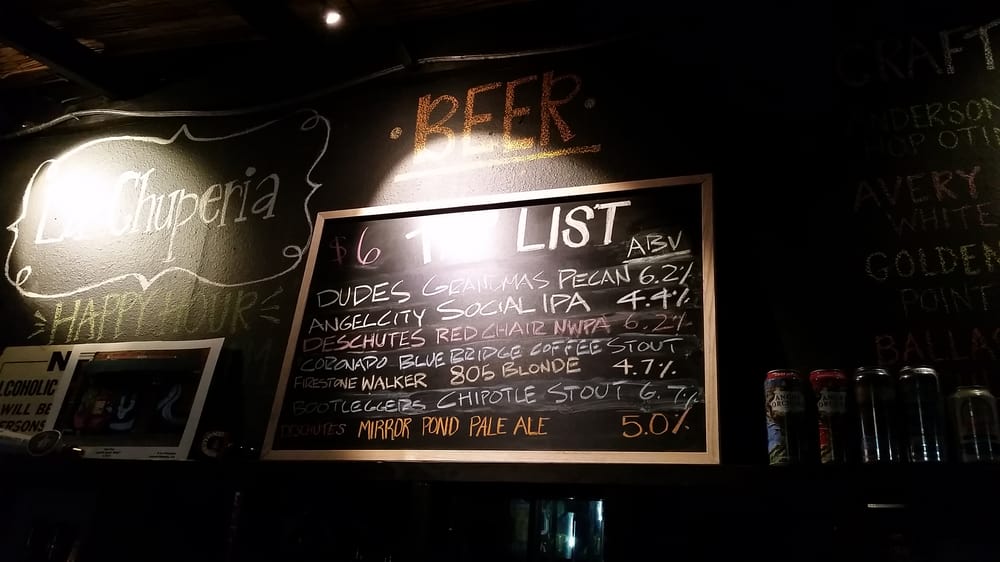 La Chuperia
HAPPY HOUR
N
ALCOHOLIC
WILL BE
PERSONS
BEER
$6 TAP LIST
ABV
DUDES GRANDMAS PECAN 6.2%
ANGELCITY SOCIAL IPA 4.4%
DESCHUTES RED CHAIR NWPA 6.2%
CORONADO BLUE BRIDGE COFFEE STOUT
FIRESTONE WALKER 805 BLONDE 4.7%
BOOTLEGGERS CHIPOTLE STOUT 6.7%
DESCHUTES MIRROR POND PALE ALE 5.0%
CRAFT
ANDERSON
HOP OTIN
AVERY
WHITE
GOLDEN
POINT
BALLA